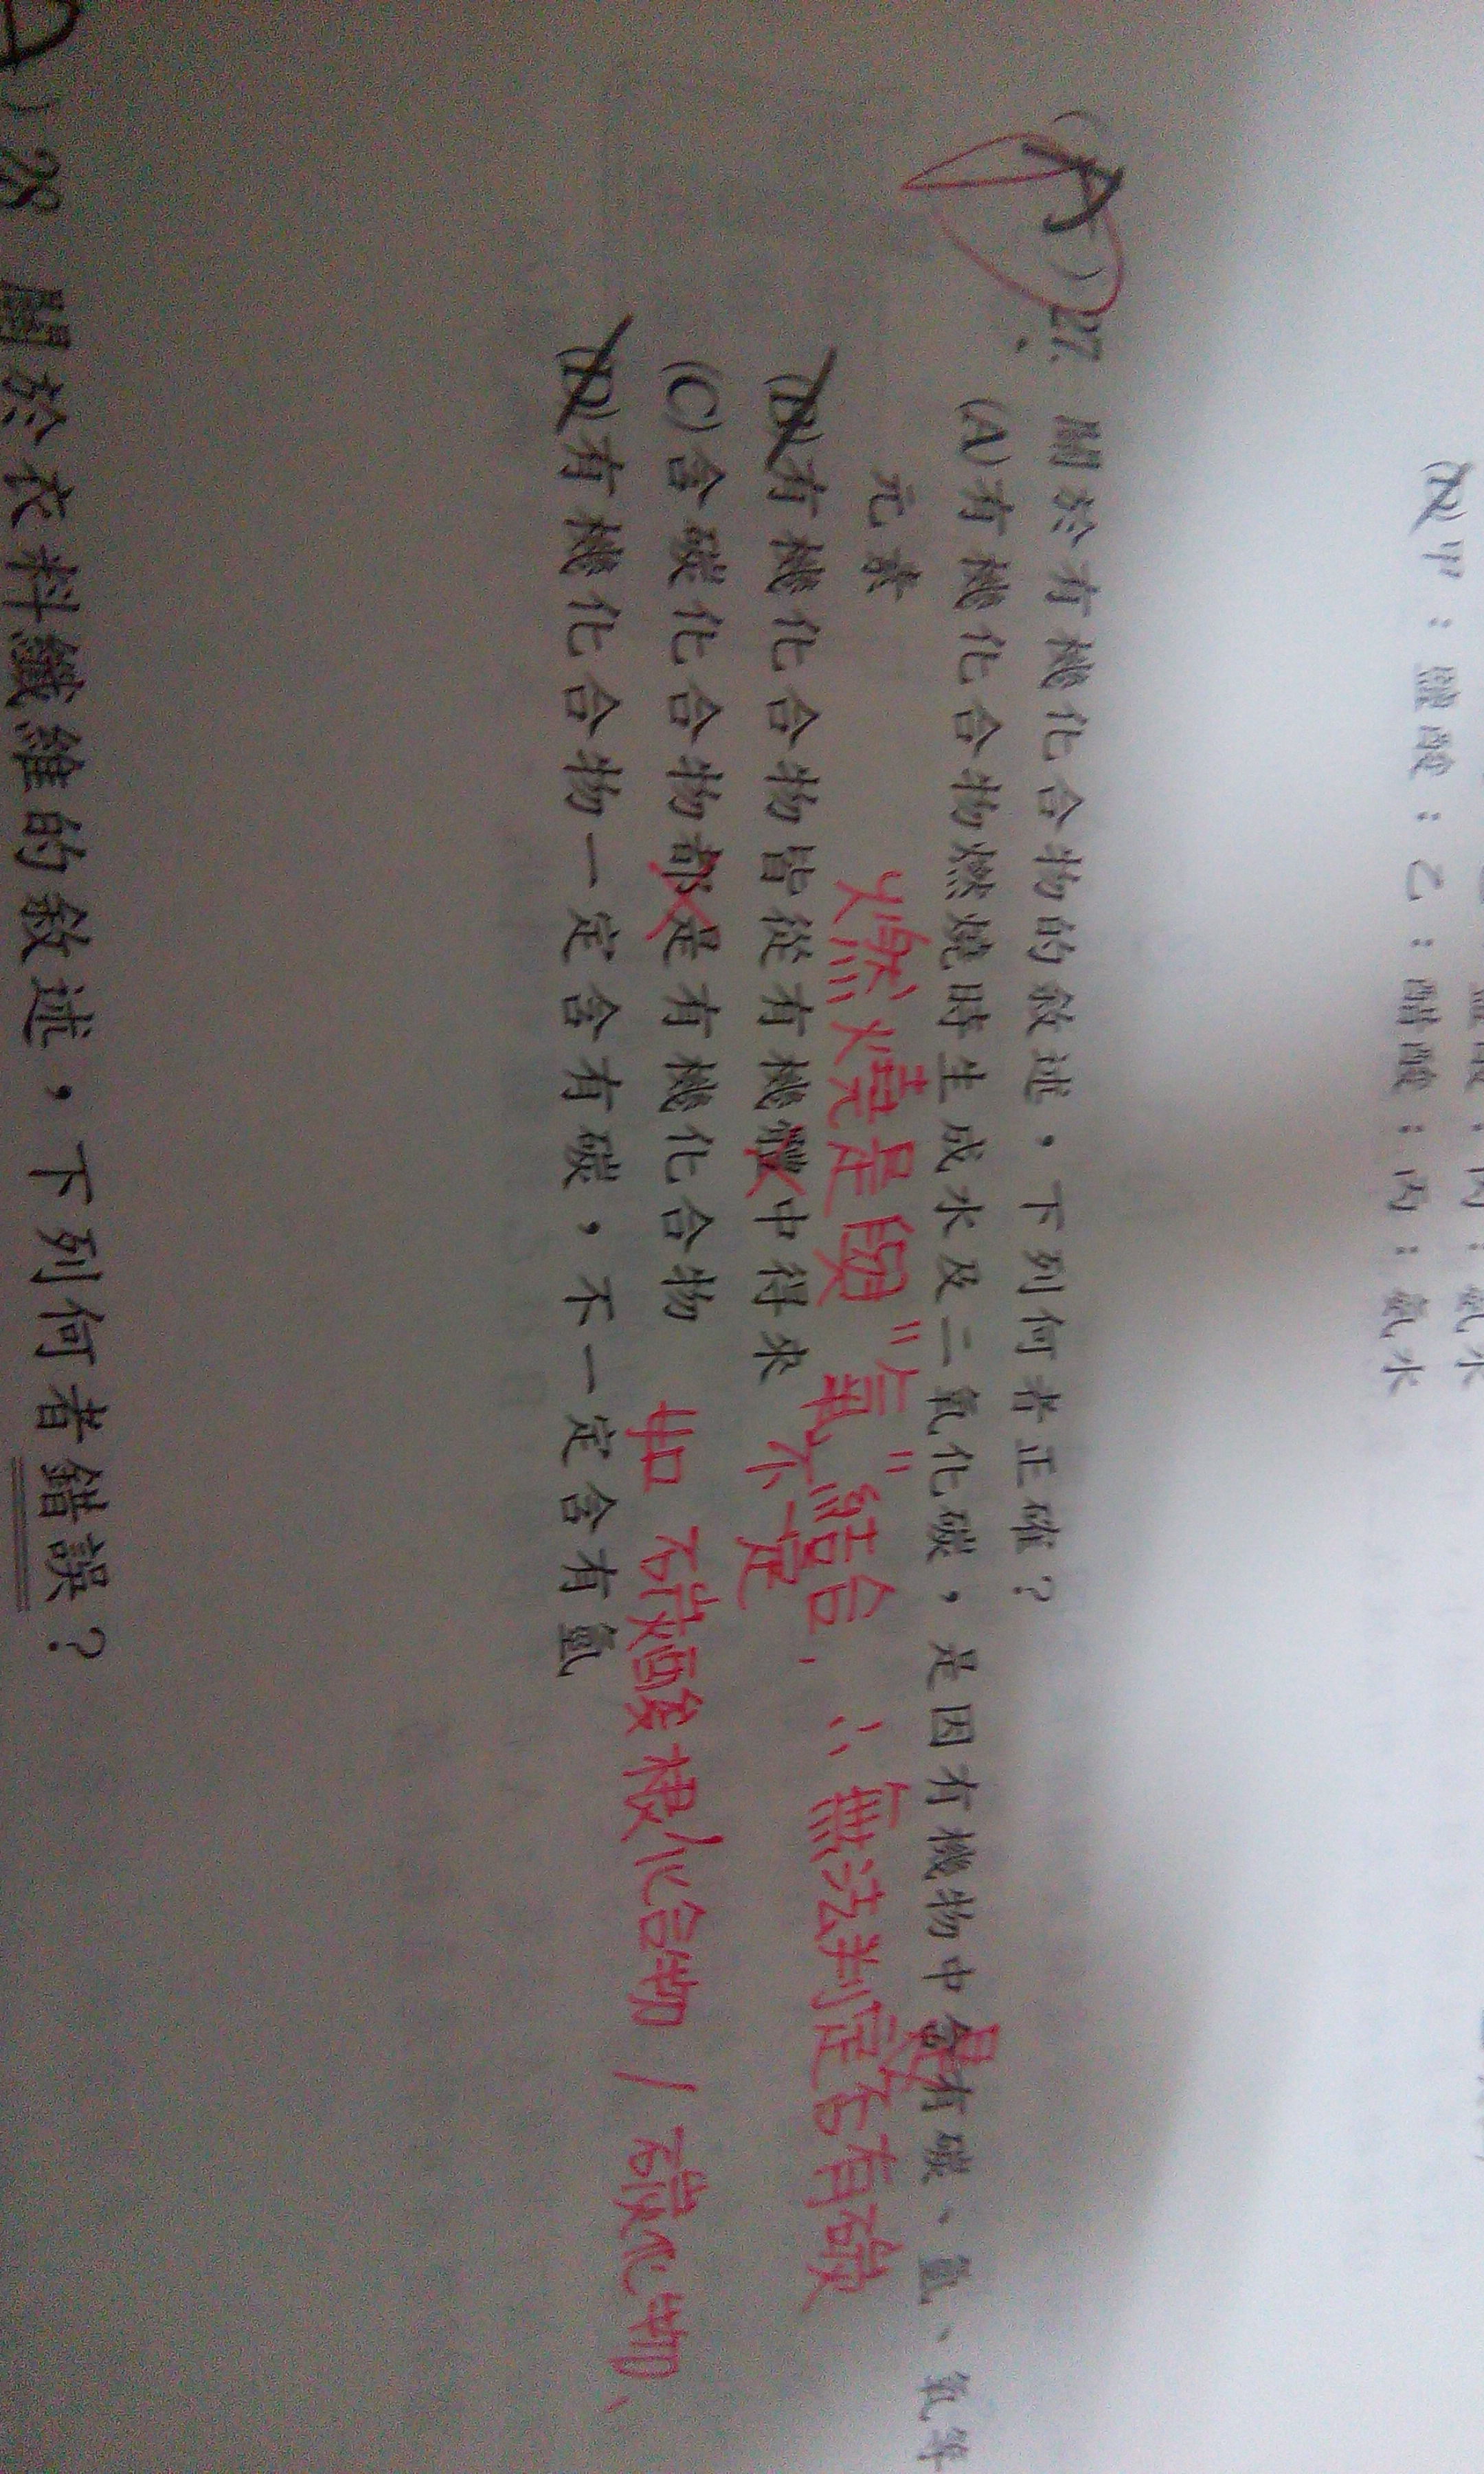 (A)甲：鹽酸；乙：醋酸；丙：氨水
(A) 27. 關於有機化合物的敘述，下列何者正確？
(A)有機化合物燃燒時生成水及二氧化碳，是因有機物中含有碳、氫、氧等
元素
燃燒是與"氧"結合，∴無法判定否有碳
是
(B)有機化合物皆從有機體中得來
不一定
(C)含碳化合物都是有機化合物
如 碳酸根化合物 / 碳化物、
(D)有機化合物一定含有碳，不一定含有氫
28 關於衣料纖維的敘述，下列何者錯誤？